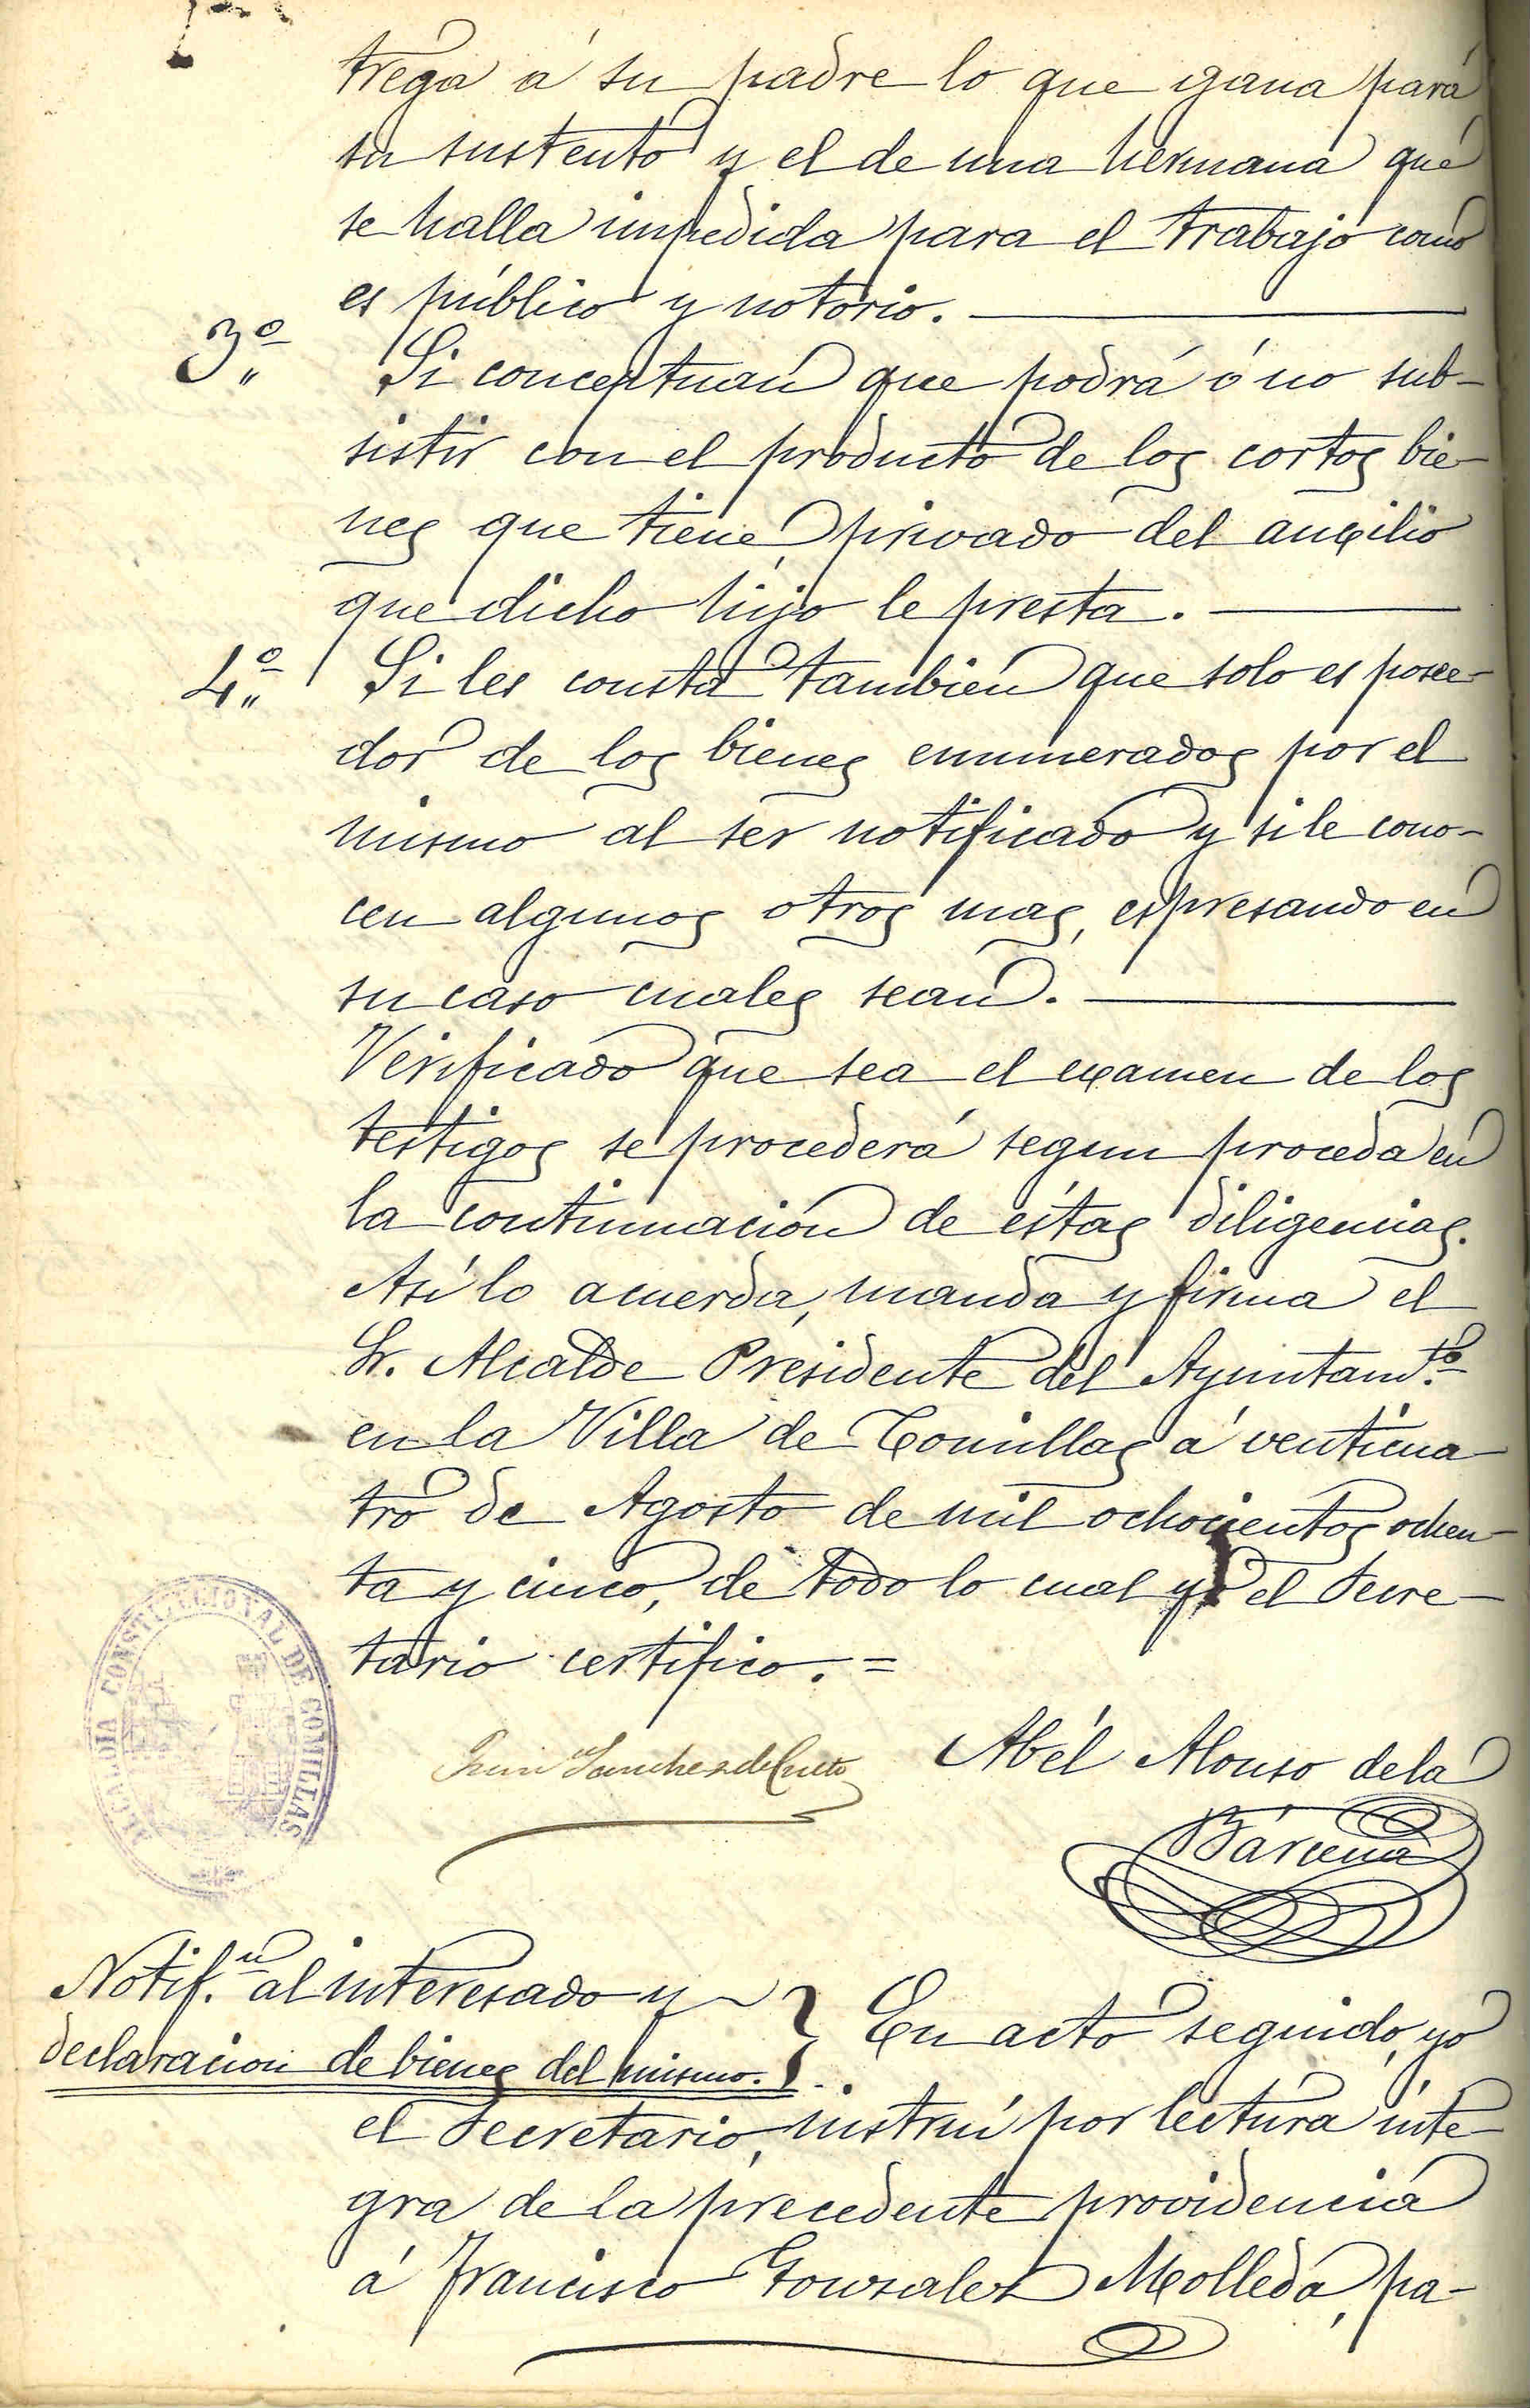 trega á su padre lo que gana para
su sustento y el de una hermana que
se halla impedida para el trabajo como
es público y notorio.
3.º Si conceptuan que podrá ó no sub-
sistir con el producto de los cortos bie-
nes que tiene, privado del auxilio
que dicho hijo le presta.
4.º Si les consta tambien que solo es posee-
dor de los bienes enumerados por el
mismo al ser notificado y si le cono-
cen algunos otros mas, espresando en
su caso cuales sean.
Verificado que sea el examen de los
testigos se procederá segun proceda en
la continuación de éstas diligencias.
Así lo acuerda, manda y firma el
Sr. Alcalde Presidente del Ayuntam.to
en la Villa de Comillas á venticua-
tro de Agosto de mil ochocientos ochen-
ta y cinco, de todo lo cual yo el Secre-
tario certifico. =
ALCALDIA CONSTITUCIONAL DE COMILLAS
Sanchez de Cueto
Abél Alonso de la
Bárcena
Notif.n al interesado y
declaracion de bienes del mismo.
En acto seguido, yo
el Secretario, instruí por lectura inte-
gra de la precedente providencia
á Francisco Gonzalez Molleda, pa-